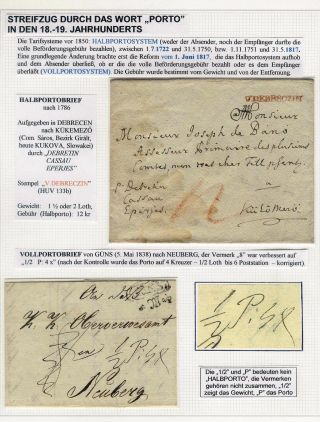 STREIFZUG DURCH DAS WORT „PORTO"
IN DEN 18.-19. JAHRHUNDERTS
Die Tarifsysteme vor 1850: HALBPORTOSYSTEM (weder der Absender, noch der Empfänger durfte die
volle Beförderungsgebühr bezahlen), zwischen 1.7.1722 und 31.5.1750, bzw. 1.11.1751 und 31.5.1817.
Eine grundlegende Änderung brachte erst die Reform vom 1. Juni 1817, die das Halbportosystem aufhob
und dem Absender überließ, ob er die die Beförderungsgebühr bezahlt oder es dem Empfänger
überläßt (VOLLPORTOSYSTEM). Die Gebühr wurde bestimmt vom Gewicht und von der Entfernung.
HALBPORTOBRIEF
nach 1786
Aufgegeben in DEBRECEN
nach KÜKEMEZŐ
(Com. Sáros, Bezirk Giralt,
heute KUKOVA, Slowakei)
durch „DEBRETIN
CASSAU
EPERJES"
Stempel „V. DEBRECZIN"
(HUV 133b)
Gewicht: 1 ½ oder 2 Loth,
Gebühr (Halbporto): 12 kr
V. DEBRECZIN
Monsieur
Monsieur Joseph de Bano
Assesseur Primaire des plusieurs
p. Debretin
Cassau
Eperjes
VOLLPORTOBRIEF von GÜNS (5. Mai 1838) nach NEUBERG, der Vermerk „8" war verbessert auf
„1/2 P: 4 x" (nach der Kontrolle wurde das Porto auf 4 Kreuzer – 1/2 Loth bis 6 Poststation – korrigiert).
K. K. Oberverwesamt
Neuberg
Die „1/2" und „P" bedeuten kein
„HALBPORTO", die Vermerken
gehören nicht zusammen, „1/2"
zeigt das Gewicht, „P" das Porto